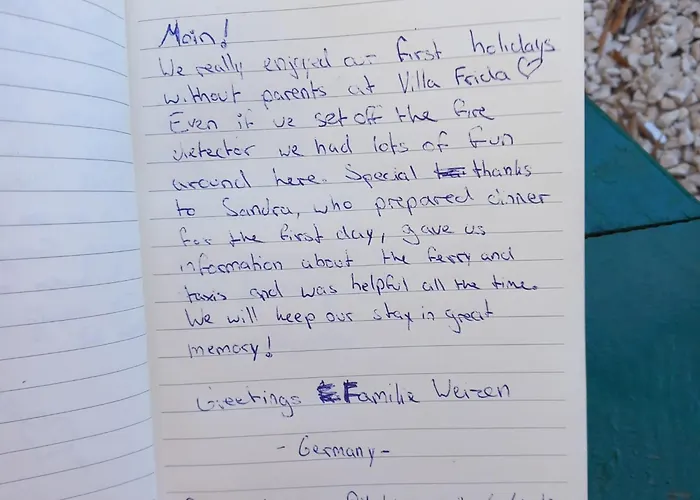 Moin!
We really enjoyed our first holidays
without parents at Villa Frida ♡
Even if we set off the fire
detector we had lots of fun
around here. Special thanks
to Sandra, who prepared dinner
for the first day, gave us
information about the ferry and
taxis and was helpful all the time.
We will keep our stay in great
memory!
Greetings Familie Weizen
- Germany -